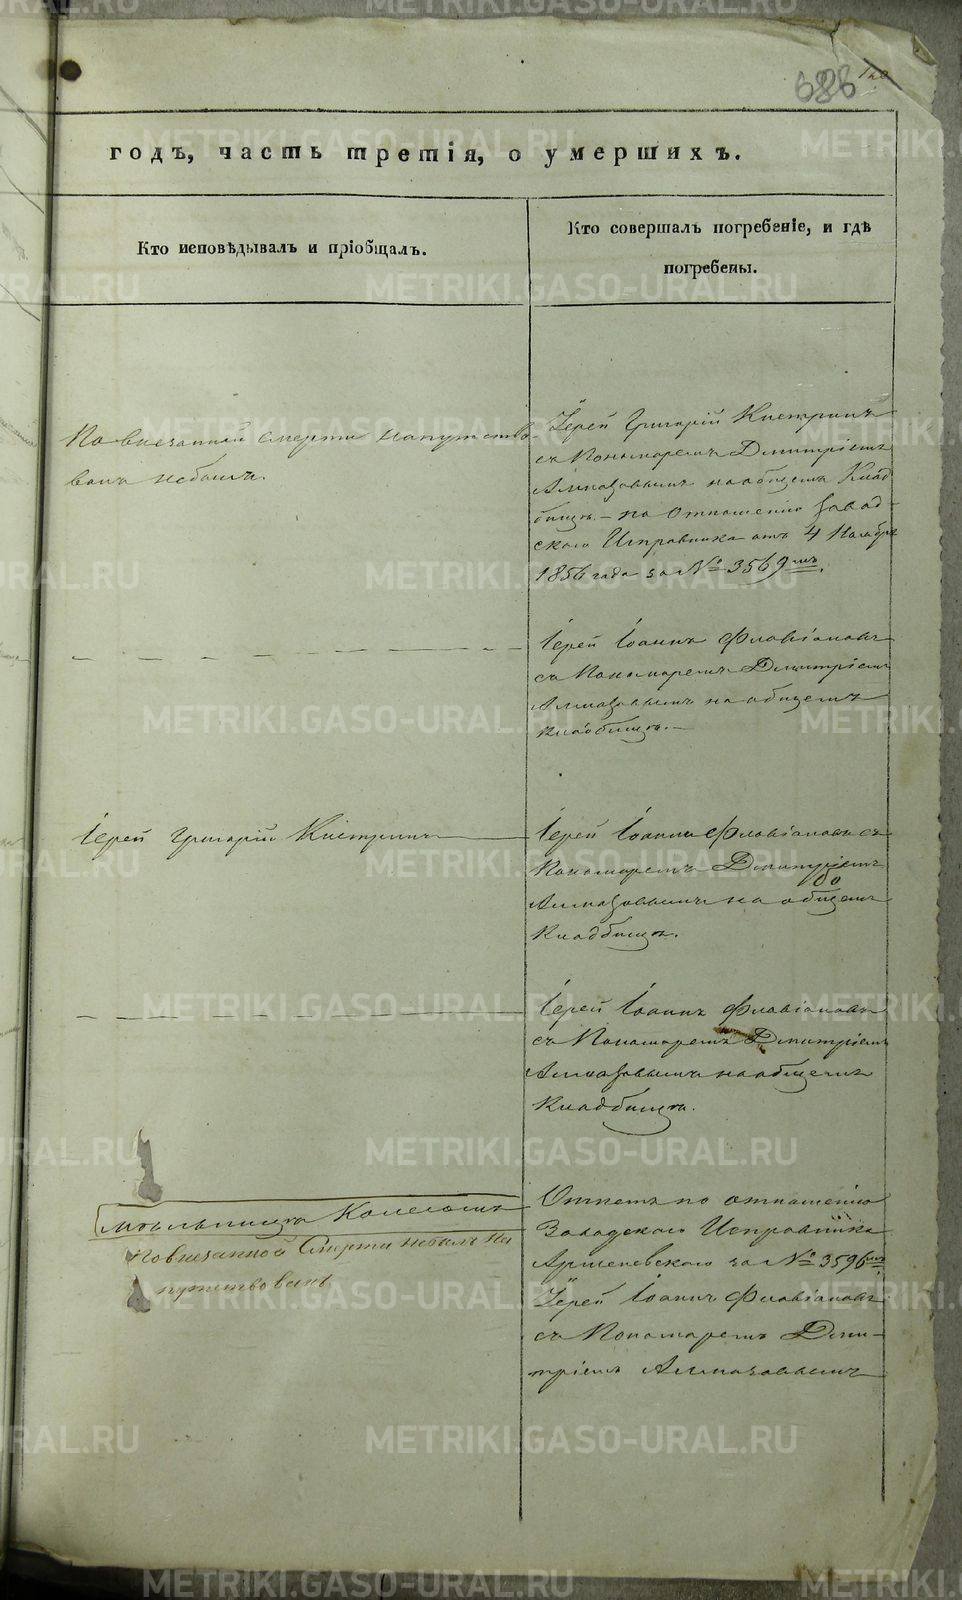 686 120
годъ, часть третія, о умершихъ.
Кто исповѣдывалъ и пріобщалъ.
Кто совершалъ погребеніе, и гдѣ
погребены.
По внезапной смерти напутство-
ванъ небылъ.
Іерей Григорій Кистринъ
съ Пономаремъ Дмитріемъ
Алмазовымъ на общемъ Клад
бищѣ. – по Отношенію Завод-
скаго Исправника отъ 4 Ноября
1856 года за № 3569мъ.
Іерей Іоаннъ Флавіановъ
съ Пономаремъ Дмитріемъ
Алмазовымъ на общемъ
кладбищѣ. –
Іерей Григорій Кистринъ
Іерей Іоаннъ Флавіановъ съ
Пономаремъ Дмитріемъ
Алмазовымъ на общемъ
Кладбищѣ.
Іерей Іоаннъ Флавіановъ
съ Пономаремъ Дмитріемъ
Алмазовымъ на общемъ
Кладбищѣ.
мѣльнишна Колесомъ
По внезапной Смерти небылъ На
путствованъ
Отпетъ по отношенію
Заводскаго Исправника
Аршеневскаго за № 3596мъ
Іерей Іоаннъ Флавіановъ
съ Пономаремъ Дми-
тріемъ Алмазовымъ
METRIKI.GASO-URAL.RU